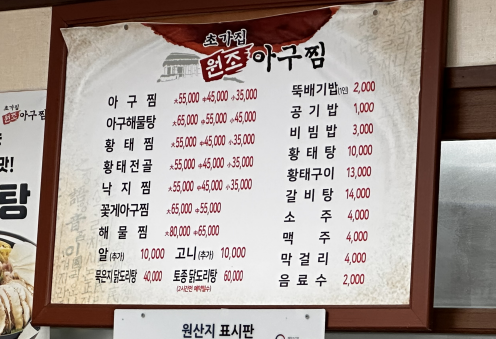 초가집
원조 아구찜
아구찜 大55,000 中45,000 小35,000
아구해물탕 大55,000 中45,000 小35,000
황태찜 大55,000 中45,000 小35,000
황태전골 大55,000 中45,000 小35,000
낙지찜 大55,000 中45,000 小35,000
꽃게아구찜 大65,000 中55,000
해물찜 大80,000 中65,000
알(추가) 10,000 고니(추가) 10,000
묵은지 닭도리탕 40,000 토종 닭도리탕 60,000
(2시간전 예약필수)
뚝배기밥(1인) 2,000
공기밥 1,000
비빔밥 3,000
황태탕 10,000
황태구이 13,000
갈비탕 14,000
소주 4,000
맥주 4,000
막걸리 4,000
음료수 2,000
초가집
원조 아구찜
맛!
탕
원산지 표시판